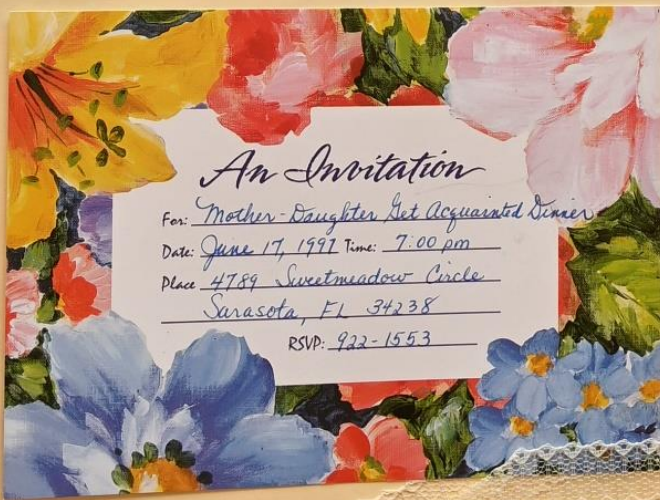 An Invitation
For: Mother-Daughter Get Acquainted Dinner
Date: June 17, 1997 Time: 7:00 pm
Place 4789 Sweetmeadow Circle
Sarasota, FL 34238
RSVP: 922-1553